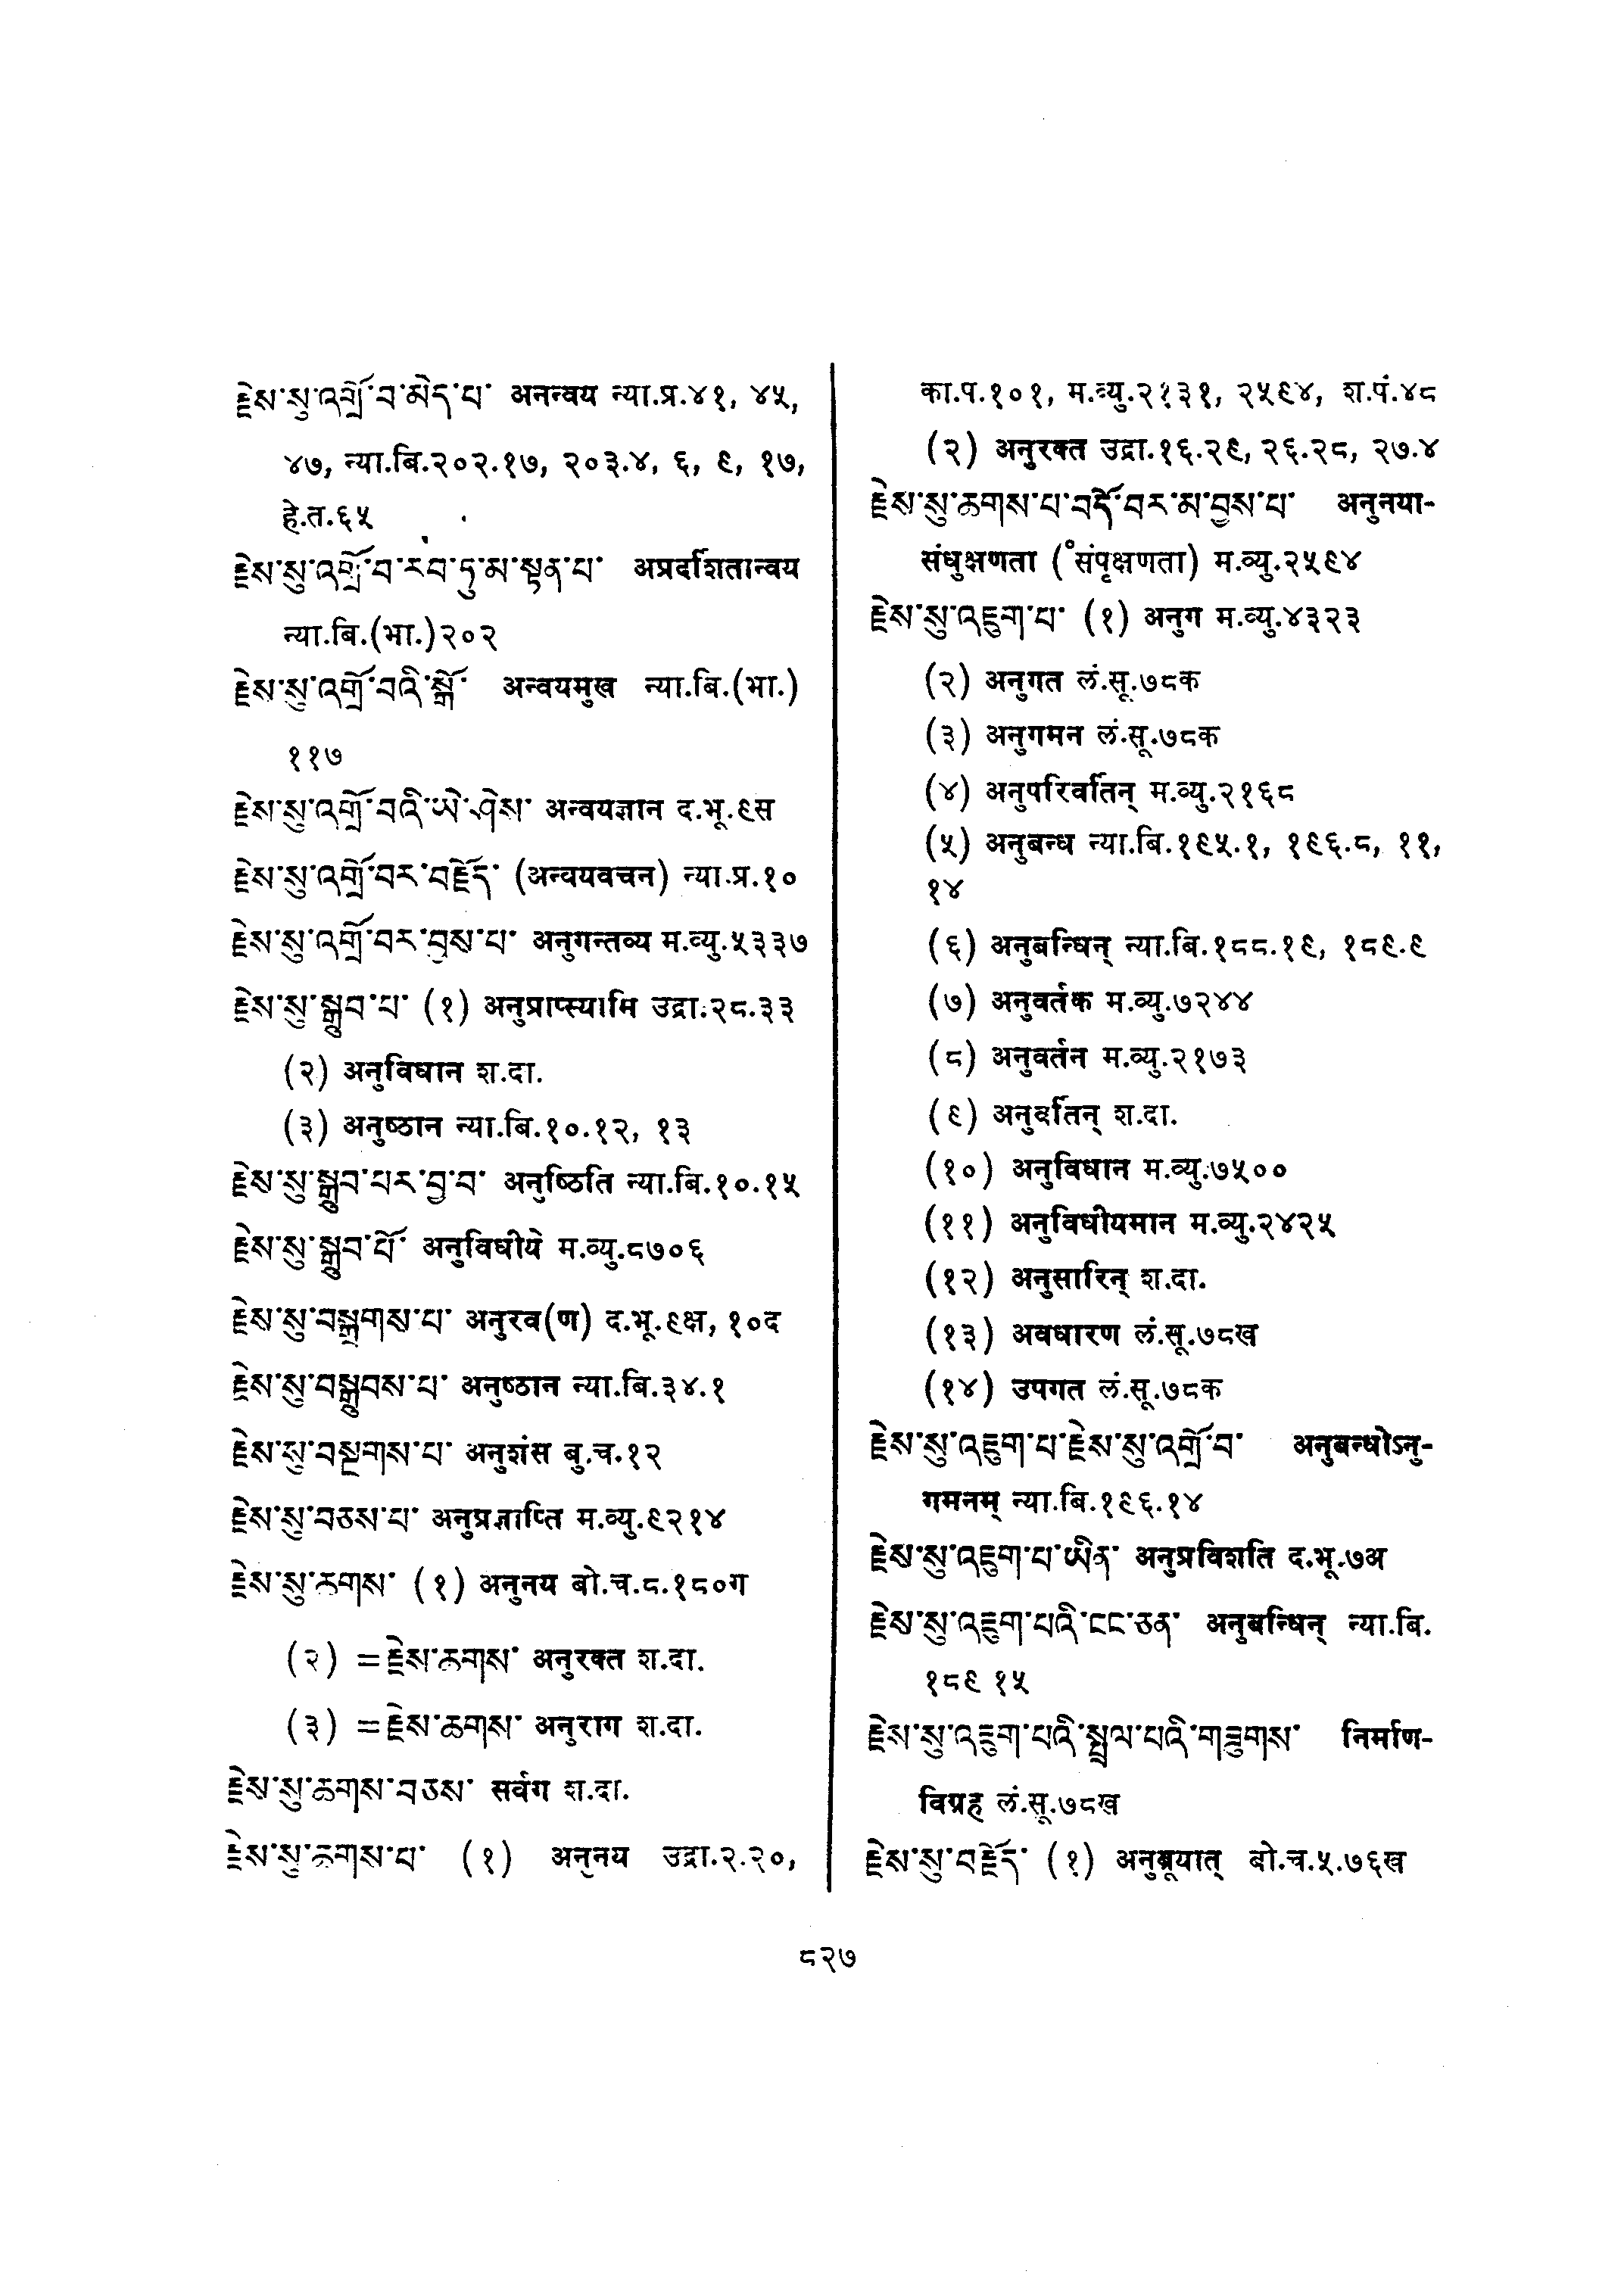 རྗེས་སུ་འགྲོ་བ་མེད་པ་ अनन्वय न्या.प्र.४१, ४५,
४७, न्या.बि.२०२.१७, २०३.४, ६, ९, १७,
हे.त.६५
རྗེས་སུ་འགྲོ་བ་རབ་ཏུ་མ་སྟན་པ་ अप्रदर्शितान्वय
न्या.बि.(भा.)२०२
རྗེས་སུ་འགྲོ་བའི་སྒོ་ अन्वयमुख न्या.बि.(भा.)
११७
རྗེས་སུ་འགྲོ་བའི་ཡེ་ཤེས་ अन्वयज्ञान द.भू.९स
རྗེས་སུ་འགྲོ་བར་བརྗོད་ (अन्वयवचन) न्या.प्र.१०
རྗེས་སུ་འགྲོ་བར་བྱས་པ་ अनुगन्तव्य म.व्यु.५३३७
རྗེས་སུ་སྒྲུབ་པ་ (१) अनुप्राप्स्यामि उद्रा.२८.३३
(२) अनुविधान श.दा.
(३) अनुष्ठान न्या.बि.१०.१२, १३
རྗེས་སུ་སྒྲུབ་པར་བྱ་བ་ अनुष्ठिति न्या.बि.१०.१५
རྗེས་སུ་སྒྲུབ་པོ་ अनुविधीये म.व्यु.८७०६
རྗེས་སུ་བསྒྲགས་པ་ अनुरव(ण) द.भू.९क्ष, १०द
རྗེས་སུ་བསྒྲུབས་པ་ अनुष्ठान न्या.बि.३४.१
རྗེས་སུ་བསྔགས་པ་ अनुशंस बु.च.१२
རྗེས་སུ་བཅས་པ་ अनुप्रज्ञाप्ति म.व्यु.९२१४
རྗེས་སུ་ཆགས་ (१) अनुनय बो.च.८.१८०ग
(२) =རྗེས་ཆགས་ अनुरक्त श.दा.
(३) =རྗེས་ཆགས་ अनुराग श.दा.
རྗེས་སུ་ཆགས་བཅས་ सर्वग श.दा.
རྗེས་སུ་ཆགས་པ་ (१) अनुनय उद्रा.२.२०,
का.प.१०१, म.व्यु.२१३१, २५९४, श.पं.४८
(२) अनुरक्त उद्रा.१६.२९, २६.२८, २७.४
རྗེས་སུ་ཆགས་པ་བདོ་བར་མ་བྱས་པ་ अनुनया-
संधुक्षणता (॰संपृक्षणता) म.व्यु.२५९४
རྗེས་སུ་འཇུག་པ་ (१) अनुग म.व्यु.४३२३
(२) अनुगत लं.सू.७८क
(३) अनुगमन लं.सू.७८क
(४) अनुपरिवर्तिन् म.व्यु.२१६८
(५) अनुबन्ध न्या.बि.१९५.१, १९६.८, ११,
१४
(६) अनुबन्धिन् न्या.बि.१८८.१९, १८९.९
(७) अनुवर्तक म.व्यु.७२४४
(८) अनुवर्तन म.व्यु.२१७३
(९) अनुवर्तिन् श.दा.
(१०) अनुविधान म.व्यु.७५००
(११) अनुविधीयमान म.व्यु.२४२५
(१२) अनुसारिन् श.दा.
(१३) अवधारण लं.सू.७८ख
(१४) उपगत लं.सू.७८क
རྗེས་སུ་འཇུག་པ་རྗེས་སུ་འགྲོ་བ་ अनुबन्धोऽनु-
गमनम् न्या.बि.१९६.१४
རྗེས་སུ་འཇུག་པ་ཡིན་ अनुप्रविशति द.भू.७अ
རྗེས་སུ་འཇུག་པའི་ངང་ཅན་ अनुबन्धिन् न्या.बि.
१८९ १५
རྗེས་སུ་འཇུག་པའི་སྤྲུལ་པའི་གཟུགས་ निर्माण-
विग्रह लं.सू.७८ख
རྗེས་སུ་བརྗོད་ (१) अनुब्रूयात् बो.च.५.७६ख
८२७